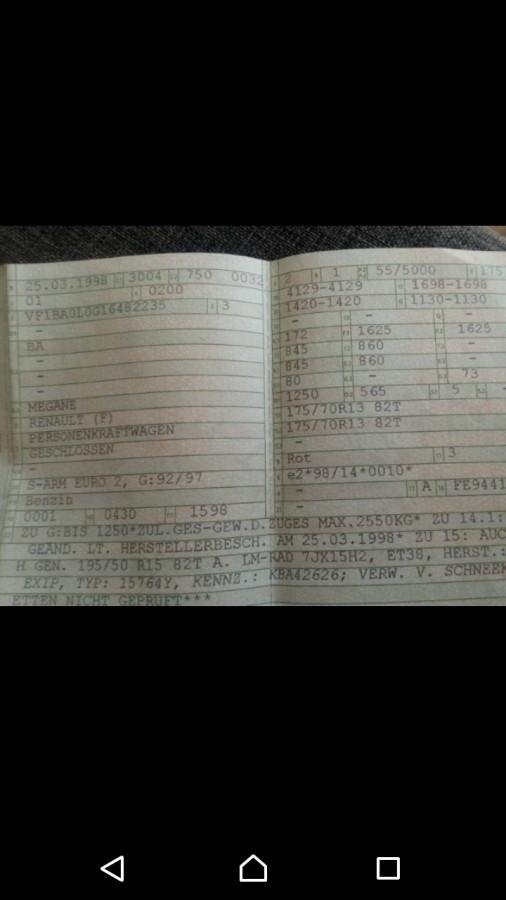 25.03.1998 3004 750 0032
01 0200
VF1BA0L0G16482235 3
-
BA
-
-
-
MEGANE
RENAULT (F)
PERSONENKRAFTWAGEN
GESCHLOSSEN
-
S-ARM EURO 2, G:92/97
Benzin
0001 0430 1598
2 1 55/5000 175
4129-4129 1698-1698
1420-1420 1130-1130
- - -
172 1625 1625
845 860 -
845 860 -
80 - 73
1250 565 5 -
175/70R13 82T
175/70R13 82T
-
Rot 3
e2*98/14*0010*
- A FE9441
-
ZU G:BIS 1250*ZUL.GES-GEW.D.ZUGES MAX.2550KG* ZU 14.1:
GEAND. LT. HERSTELLERBESCH. AM 25.03.1998* ZU 15: AUC
H GEN. 195/50 R15 82T A. LM-RAD 7JX15H2, ET38, HERST.:
EXIP, TYP: 15764Y, KENNZ.: KBA42626; VERW. V. SCHNEEK
ETTEN NICHT GEPRÜFT***